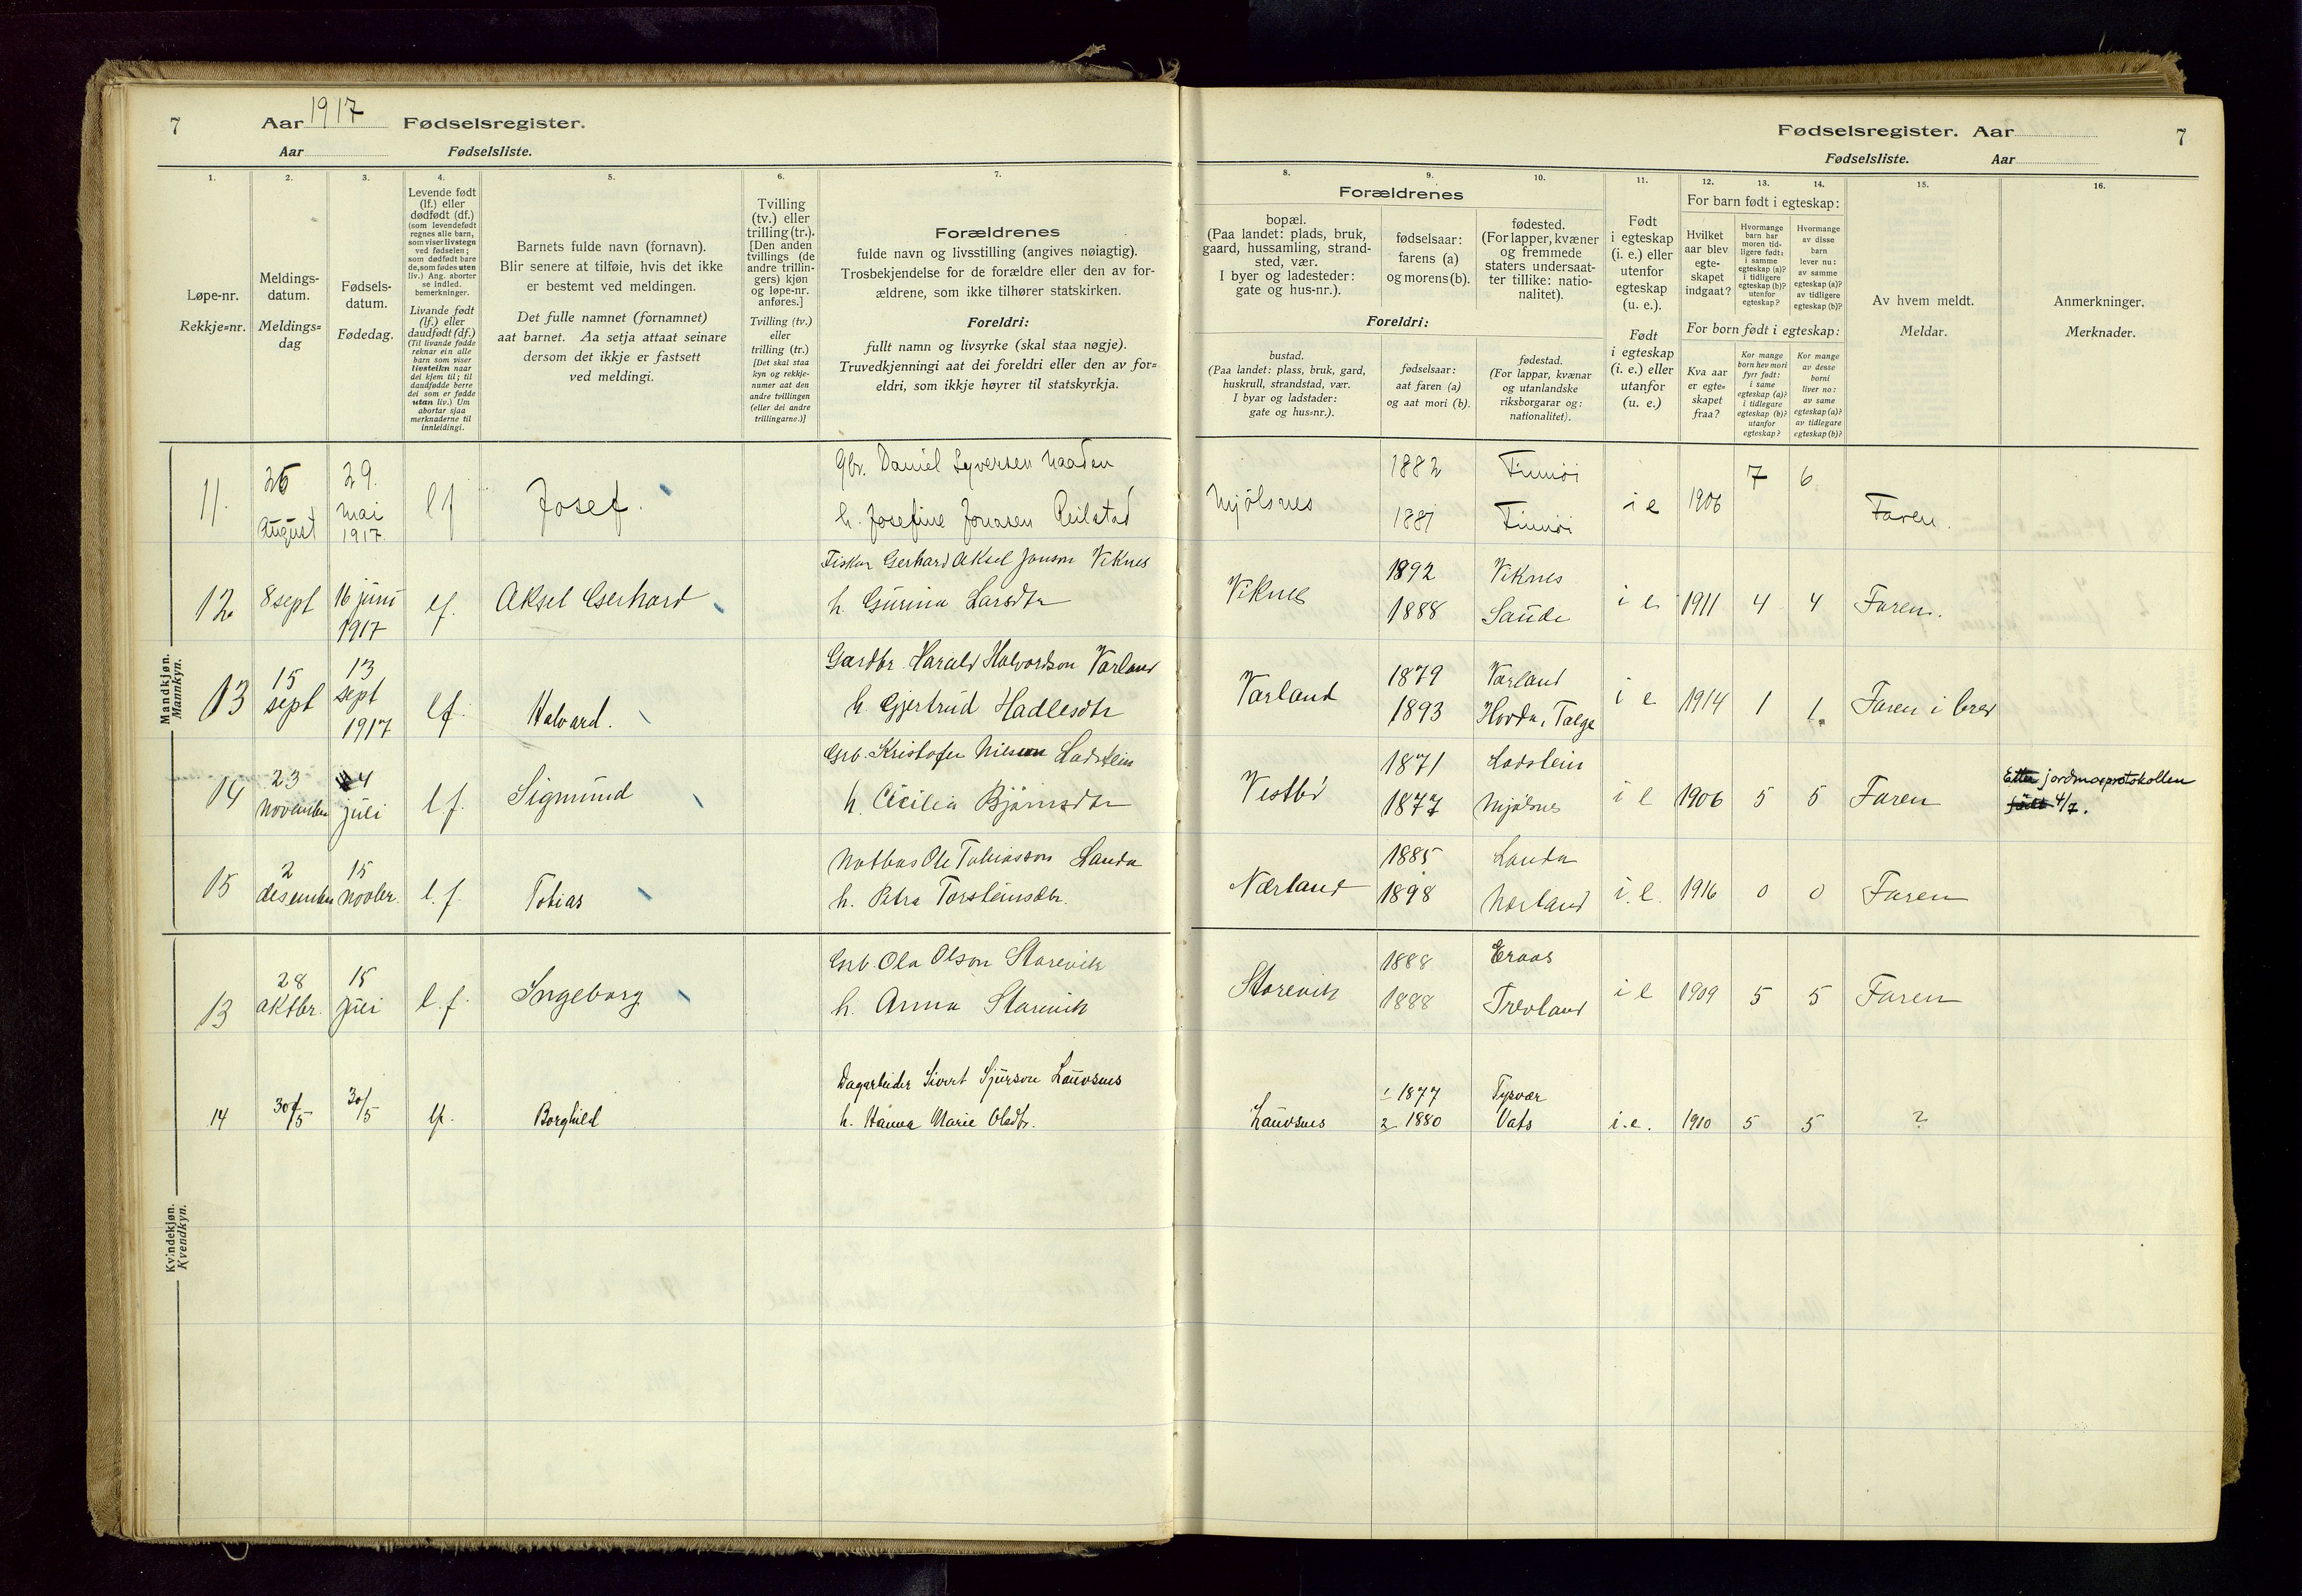 7 Aar 1917 Fødselsregister.
Aar Fødselsliste.
Fødselsregister. Aar 7
Fødselsliste. Aar
1. 2. 3. 4. 5. 6. 7. 8. 9. 10. 11. 12. 13. 14. 15. 16.
Løpe-nr.
Rekkje=nr.
Meldings-
datum.
Meldings=
dag
Fødsels-
datum.
Fødedag.
Levende født
(lf.) eller
dødfødt (df.)
(som levendefødt
regnes alle barn,
som viser livstegn
ved fødselen;
som dødfødt bare
de, som fødes uten
liv.) Ang. aborter
se indled.
bemerkninger.
Livande født
(lf.) eller
daudfødt (df.)
(Til livande fødde
reknar ein alle
barn som viser
livsteikn naar
dei kjem til; til
daudfødde berre
dei som er fødde
utan liv.) Um
abortar sjaa
merknaderne til
innleidingi.
Barnets fulde navn (fornavn).
Blir senere at tilføie, hvis det ikke
er bestemt ved meldingen.
Det fulle namnet (fornamnet)
aat barnet. Aa setja attaat seinare
dersom det ikkje er fastsett
ved meldingi.
Tvilling
(tv.) eller
trilling (tr.).
[Den anden
tvillings (de
andre trillin-
gers) kjøn
og løpe-nr.
anføres.]
Tvilling (tv.)
eller
trilling (tr.)
[Det skal staa
kyn og rekkje-
numer aat den
andre tvillingen
(eller dei andre
trillingarne.)]
Forældrenes
fulde navn og livsstilling (angives nøiagtig).
Trosbekjendelse for de forældre eller den av for-
ældrene, som ikke tilhører statskirken.
Foreldri:
fullt namn og livsyrke (skal staa nøgje).
Truvedkjenningi aat dei foreldri eller den av for=
eldri, som ikkje høyrer til statskyrkja.
Forældrenes
bopæl.
(Paa landet: plads, bruk,
gaard, hussamling, strand-
sted, vær.
I byer og ladesteder:
gate og hus-nr.).
fødselsaar:
farens (a)
og morens (b).
fødested.
(For lapper, kvæner
og fremmede
staters undersaat-
ter tillike: natio-
nalitet).
Foreldri:
bustad.
(Paa landet: plass, bruk, gard,
huskrull, strandstad, vær.
I byar og ladstader:
gate og hus=nr.).
fødselsaar:
aat faren (a)
og aat mori (b).
fødestad.
(For lappar, kvænar
og utanlandske
riksborgarar og:
nationalitet).
Født
i egteskap
(i. e.) eller
utenfor
egteskap
(u. e.).
Født
i egteskap
(i. e.) eller
utanfor
(u. e.)
For barn født i egteskap:
Hvilket
aar blev
egte-
skapet
indgaat?
Hvormange
barn har
moren tid-
ligere født:
i samme
egteskap (a)?
i tidligere
egteskap (b)?
utenfor
egteskap?
Hvormange
av disse
barn
lever nu:
av samme
egteskap (a)?
av tidligere
egteskap (b)?
For born født i egteskap:
Kva aar
er egte=
skapet
fraa?
Kor mange
born hev mori
fyrr født:
i same
egteskap (a)?
i tidlegare
egteskap (b)?
utanfor
egteskap?
Kor mange
av desse
borni
liver no:
av same
egteskap (a)?
av tidlegare
egteskap (b)?
Av hvem meldt.
Meldar.
Anmerkninger.
Merknader.
Mandkjøn.
Mannkyn.
11. 26 august 29. mai 1917. lf Josef.
Gbr. Daniel Syversen Naaden
h. Josefine Jonasen Reilstad
Mjölsnes 1882 Finnöi
1881 Finnöi i e 1906 7 6 Faren.
12. 8 sept 16 juni 1917 lf. Aksel Gerhard
Fisker Gerhard Aksel Jonson Viknes
h. Gunna Larsdtr
Viknes 1892 Viknes
1888 Saude i e 1911 4 4 Faren.
13 15 sept 13 sept 1917 lf. Halvard.
Gardbr. Harald Halvardson Varland
h Gjertrud Hadlesdtr
Varland 1879 Varland
1893 Hovda, Talge i e 1914 1 1. Faren i brev
14 23 november 4 juli l f. Sigmund
Grb. Kristofer Nilsson Ladstein
h. Cecilia Björnsdtr
Vestbö 1871 Ladstein
1877 Mjölsnes i e 1906 5 5 Faren
Etter jordmorprotokollen
født 4/7.
15 2 desember 15 novbr. l. f. Tobias
Notbas Ole Tobiasson Landa
h. Petra Torsteinsdtr.
Nærland 1885 Landa
1898 Nærland i. e. 1916 0 0 Faren
Kvindekjøn.
Kvendkyn.
13 28 oktbr. 15 juli l. f. Ingeborg
Grb. Ola Olson Storevik
h. Anna Storevik
Storevik 1888 Eraas
1888 Trovland i e 1909 5 5 Faren
14 30/5 30/5 lf. Borghild
Dagarbeider Sivert Sjurson Lauvsnes
h. Hanna Marie Olsdtr.
Lauvsnes 1 1877 Tysvær
2 1880 Vats i. e. 1910 5 5 ?